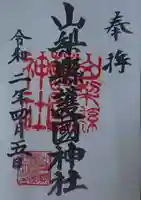 奉拝
山梨縣護國神社
令和二年四月五日